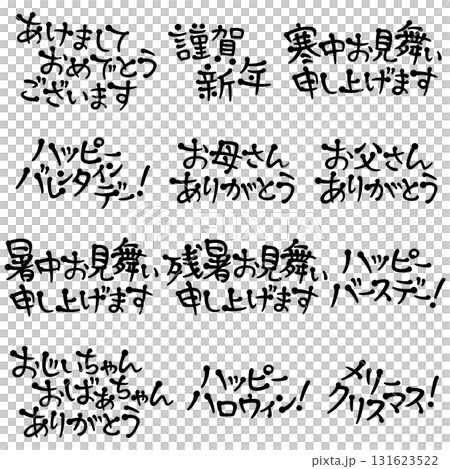 あけまして
おめでとう
ございます
謹賀
新年
寒中お見舞い
申し上げます
ハッピー
バレンタイン
デー!
お母さん
ありがとう
お父さん
ありがとう
暑中お見舞い
申し上げます
残暑お見舞い
申し上げます
ハッピー
バースデー!
おじいちゃん
おばあちゃん
ありがとう
ハッピー
ハロウィン!
メリー
クリスマス!
pixta.jp - 131623522